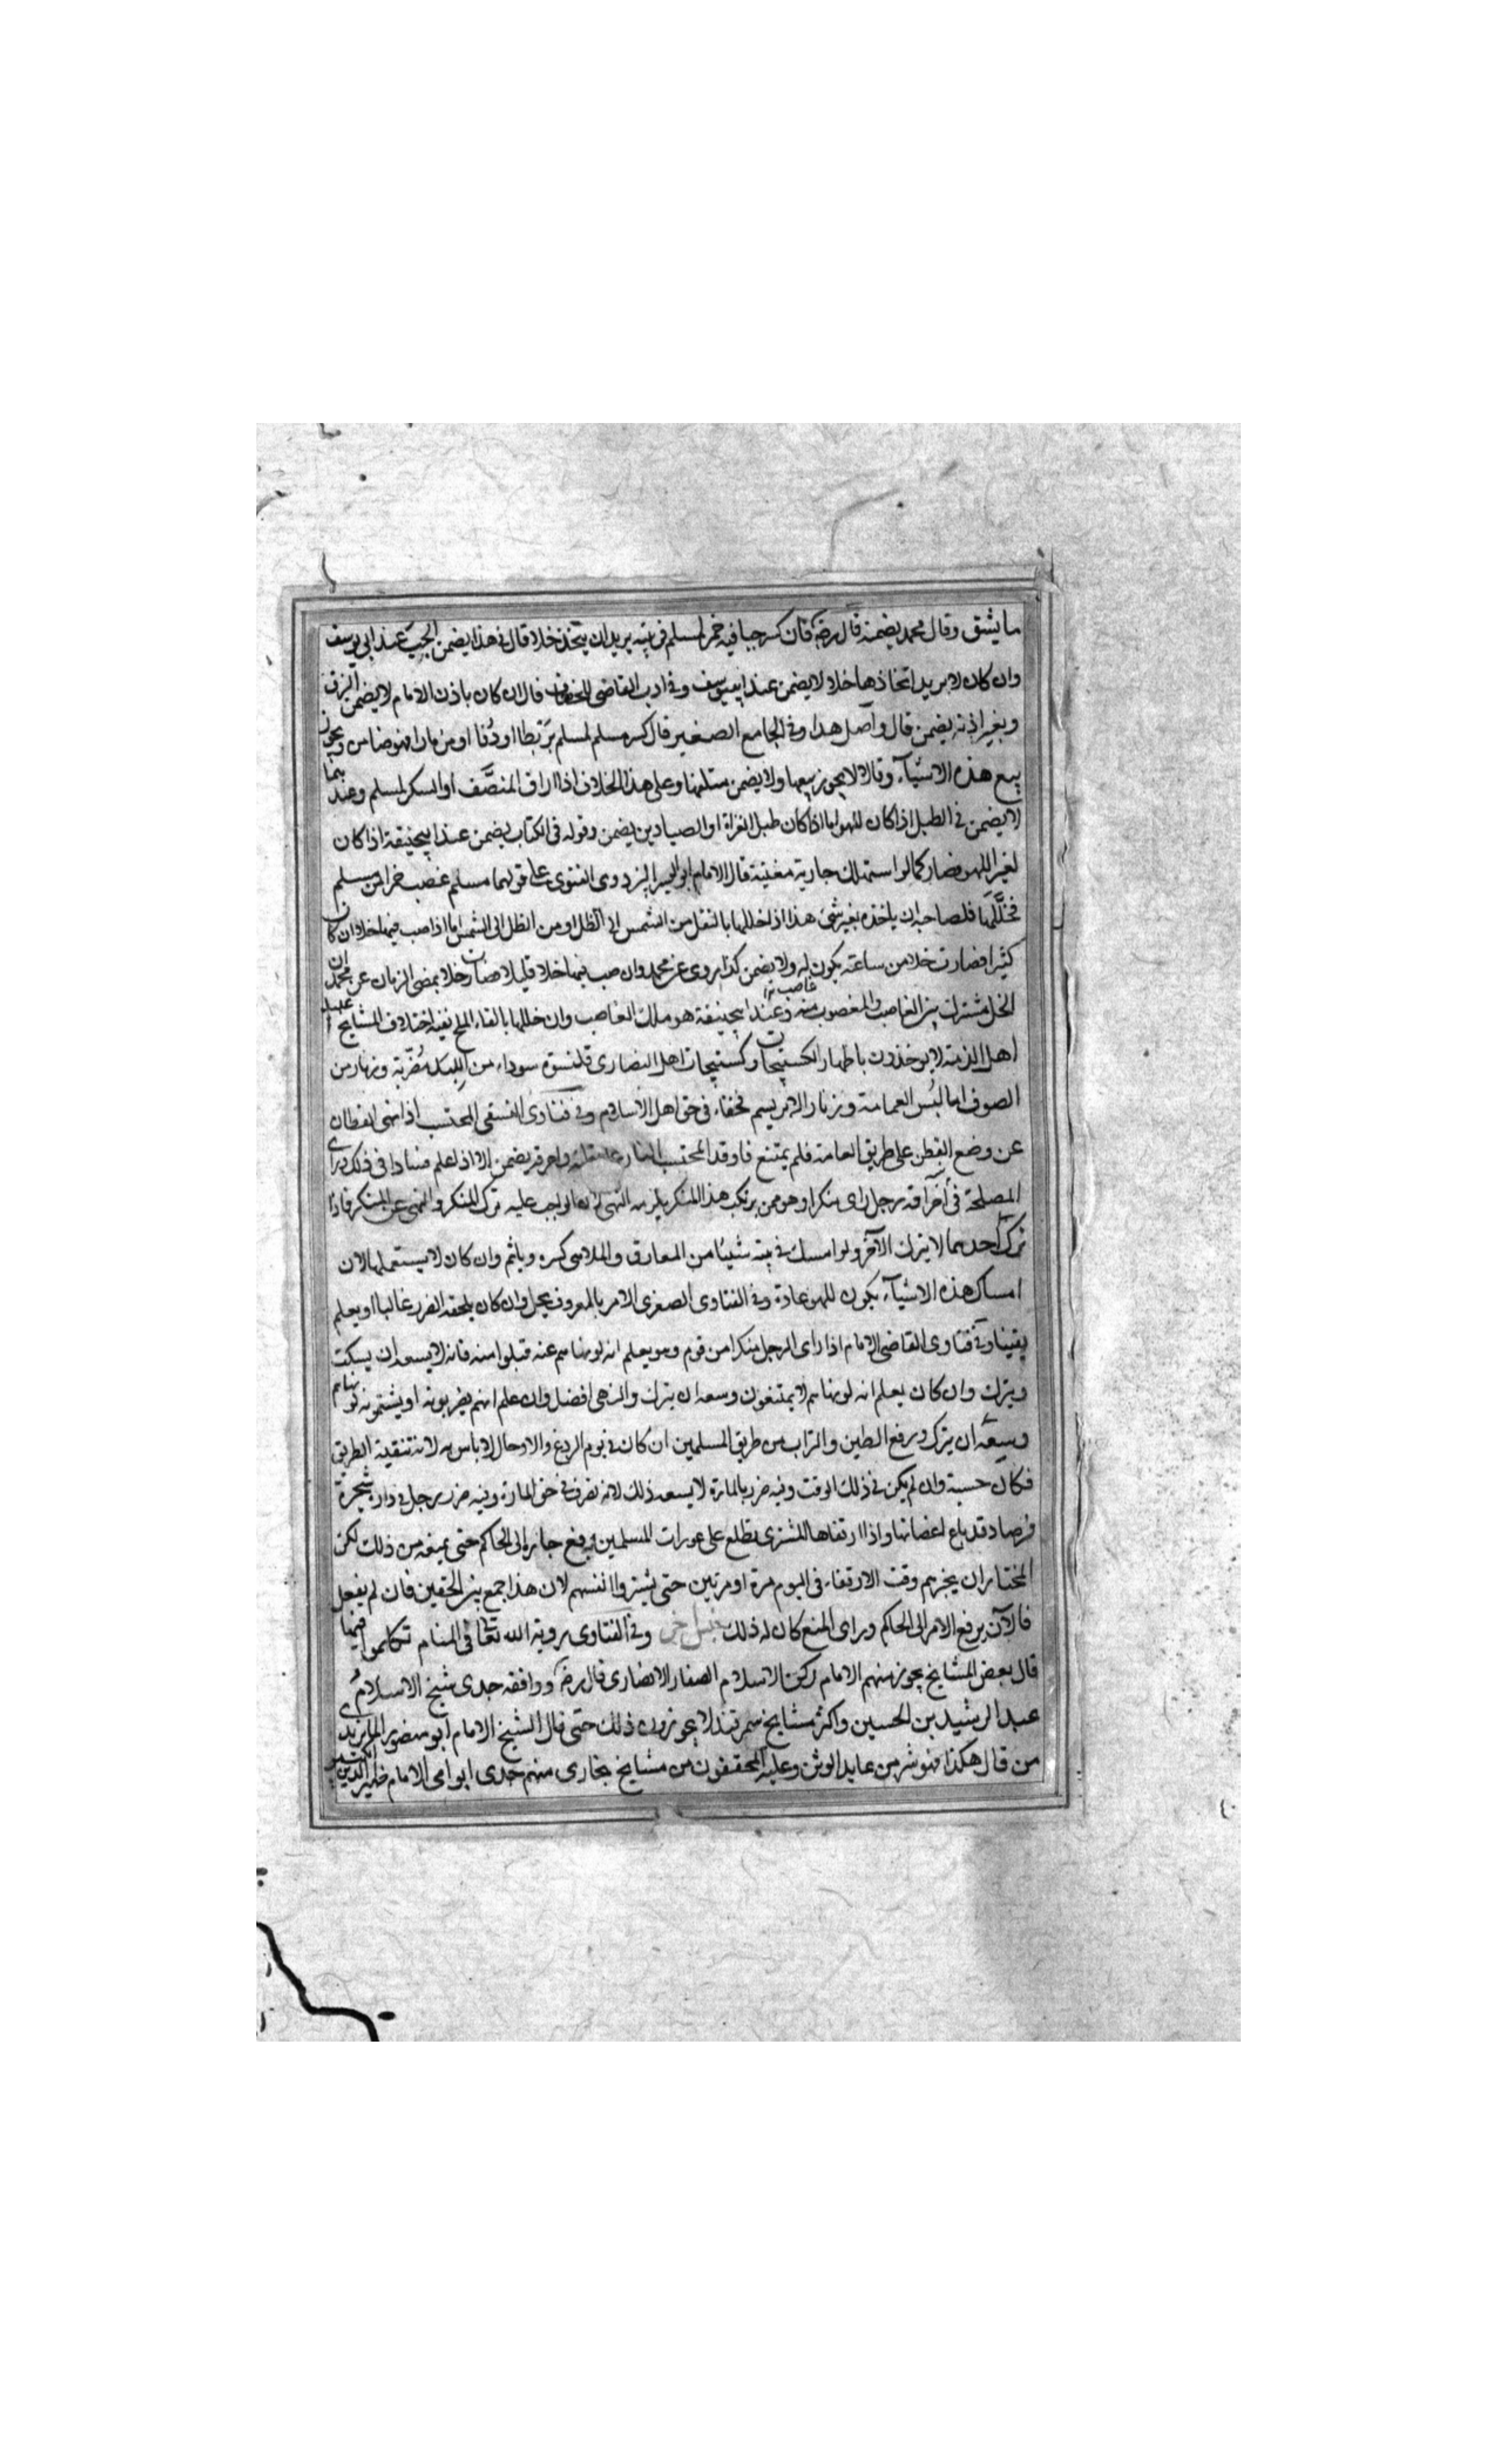 ما يشق وقال محمد يضمنه قال رضه فان كسر حبا فيه خمر لمسلم في بيته يريد ان يتخذ خلا قال في هذا يضمن الحب عند ابي يوسف
وان كان لا يريد اتخاذها خلا لا يضمن عند ابييوسف وفي ادب القاضي للخصاف قال ان كان باذن الامام لا يضمن الزق
وبغير اذنه يضمن قال واصل هذا وفي الجامع الصغير قال كسر مسلم لمسلم بربطا او دفا او مزمارا فهو ضامن ويجوز
بيع هذه الاشياء وقالا لا يجوز بيعها ولا يضمن متلفها وعلى هذا الخلاف اذا اراق المنصف او السكر لمسلم وعندهما
لا يضمن في الطبل اذا كان للهو اما اذا كان طبل الغزاة او الصيادين يضمن وقوله في الكتاب يضمن عند ابيحنيفة اذا كان
لغير اللهو فصار كما لو استهلك جارية مغنية قال الامام ابو اليسر البزدوي الفتوى على قولهما مسلم غصب خمرا من مسلم
فخللها فلصاحبه ان ياخذه بغير شئ هذا اذا خللها بالنقل من الشمس الى الظل او من الظل الى الشمس اما اذا صب فيها خلا وان كان
كثيرا فصارت خلا من ساعته يكون له ولا يضمن كذا روى عن محمد وان صب فيها خلا قليلا صارت خلا بمضى الزمان عن محمد ان
الخل مشترك بين الغاصب والمغصوب منه وعند ابيحنيفة هو ملك الغاصب وان خللها بالقاء الملح ففيه اختلاف المشايخ
اهل الذمة لا يوخذون باظهار الكستيجات وكستيجات اهل النصارى قلنسوة سوداء من اللبد مضربة وزنار من
الصوف اما لبس العمامة وزنار الابريسم فخفاء في حق اهل الاسلام وفي فتاوى النسفي المحتسب اذا نهى القطان
عن وضع القطن على طريق العامة فلم يمتنع فاوقد المحتسب النار على قطنه واحرقه يضمن الا اذا علم فسادا في ذلك وراى
المصلحة في احراقه رجل راى منكرا وهو ممن يرتكب هذا المنكر يلزمه النهي لانه الواجب عليه ترك المنكر والنهي عن المنكر فاذا
ترك احدهما لا يترك الآخر ولو امسك في بيته شيئا من المعازف والملاهي كره وياثم وان كان لا يستعملها لان
امساك هذه الاشياء يكون للهو عادة وفي الفتاوى الصغرى الامر بالمعروف يحل وان كان يلحقه الضرر غالبا او يعلم
يقينا وفي فتاوى القاضي الامام اذا راى الرجل منكرا من قوم وهو يعلم انه لو نهاهم عنه قبلوا منه فانه لا يسعه ان يسكت
ويترك وان كان يعلم انه لو نهاهم لا يمتنعون وسعه ان يترك والنهي افضل وان علم انهم يضربونه او يشتمونه لو نهاهم
وسعه ان يترك ورفع الطين والتراب من طريق المسلمين ان كان في يوم الردغ والاوحال لا باس به لانه تنقية الطريق
فكان حسبة وان لم يكن في ذلك الوقت وفيه ضرر بالمارة لا يسعه ذلك لانه تصرف في حق المارة وفيه ضرر رجل في داره شجرة
فرصاد قد باع اغصانها واذا ارتقاها المشتري يطلع على عورات المسلمين يرفع جاره الى الحاكم حتى يمنعه من ذلك لكن
المختار ان يخبرهم وقت الارتقاء في اليوم مرة او مرتين حتى يستروا انفسهم لان هذا جمع بين الحقين فان لم يفعل
فالآن يرفع الامر الى الحاكم وراى المنع كان له ذلك وفي الفتاوى رؤية الله تعالى في المنام تكلموا فيها
قال بعض المشايخ يجوز منهم الامام ركن الاسلام الصفار الانصاري قال رضه ووافقه جدي شيخ الاسلام
عبد الرشيد بن الحسين واكثر مشايخ سمرقند لا يجوزون ذلك حتى قال الشيخ الامام ابو منصور الماتريدي
من قال هكذا فهو شر من عابد الوثن وعليه المحققون من مشايخ بخارى منهم جدي ابو امي الامام ظهير الدين